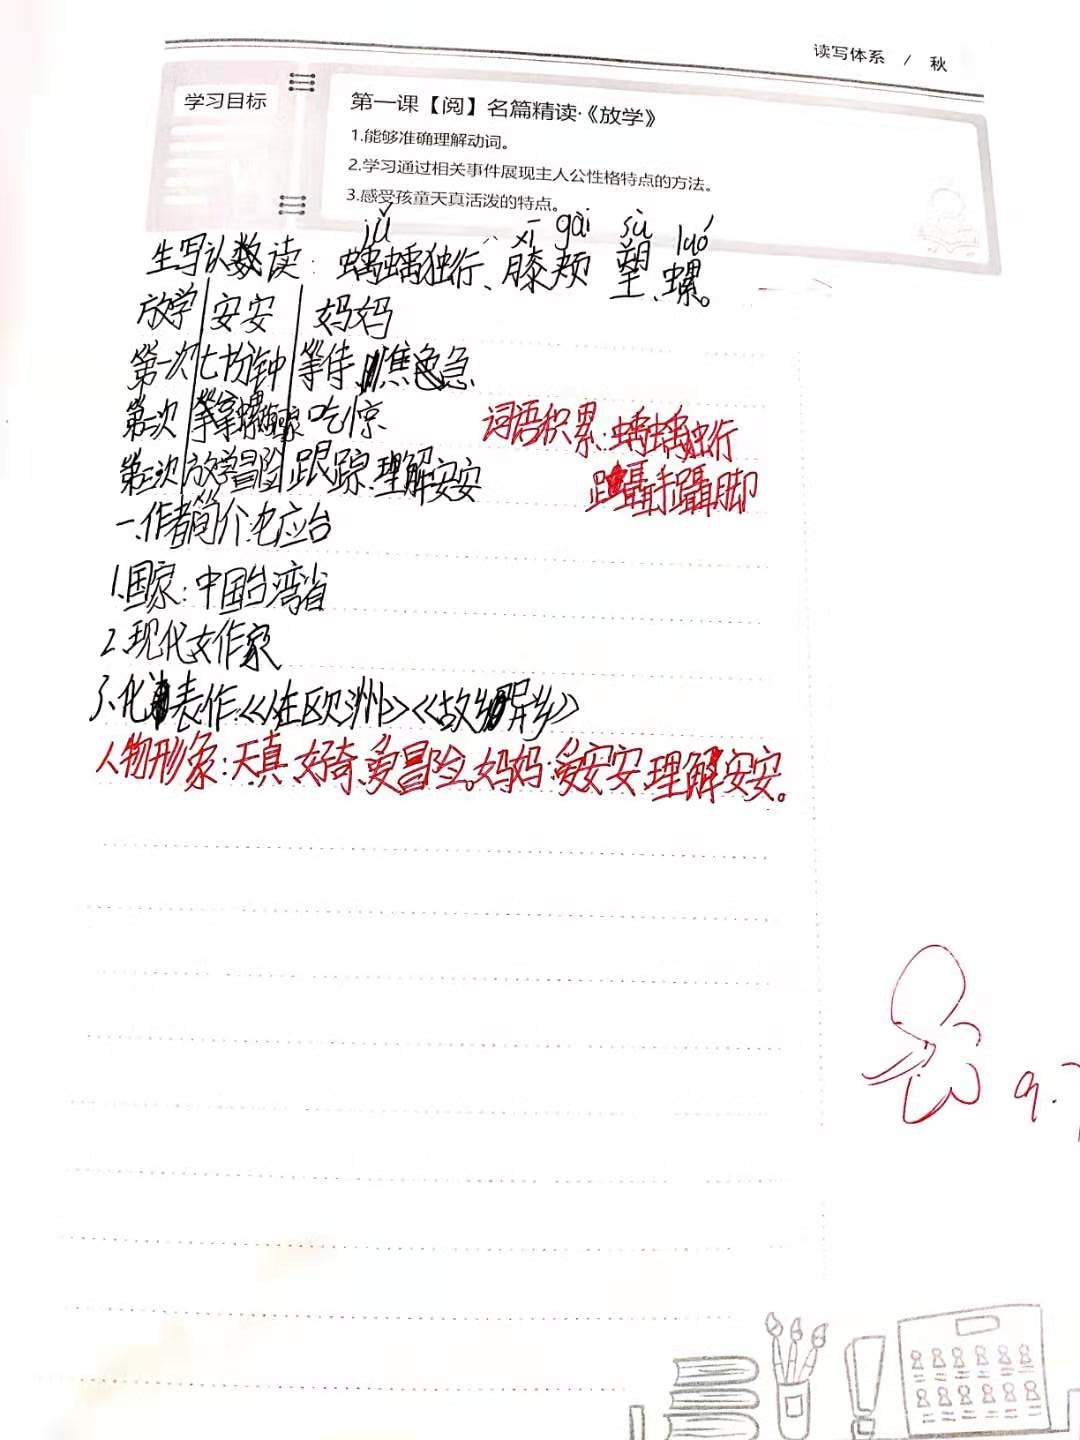 读写体系 / 秋
学习目标
第一课【阅】名篇精读·《放学》
1.能够准确理解动词。
2.学习通过相关事件展现主人公性格特点的方法。
3.感受孩童天真活泼的特点。
jǔ xī gāi sù luó
生写认数读：踽踽独行、膝颏 塑、螺。
放学 安安 妈妈
第一次 七十分钟 等待 焦急
第二次 吃惊
词语积累：踽踽独行
第三次 放学冒险 跟踪 理解安安
蹑手蹑脚
一.作者简介:龙应台
1.国家：中国台湾省
2.现代女作家
3.代表作:《在欧洲》《故乡异乡》
人物形象：天真 好奇 爱冒险。妈妈:爱安安 理解安安。
9.7